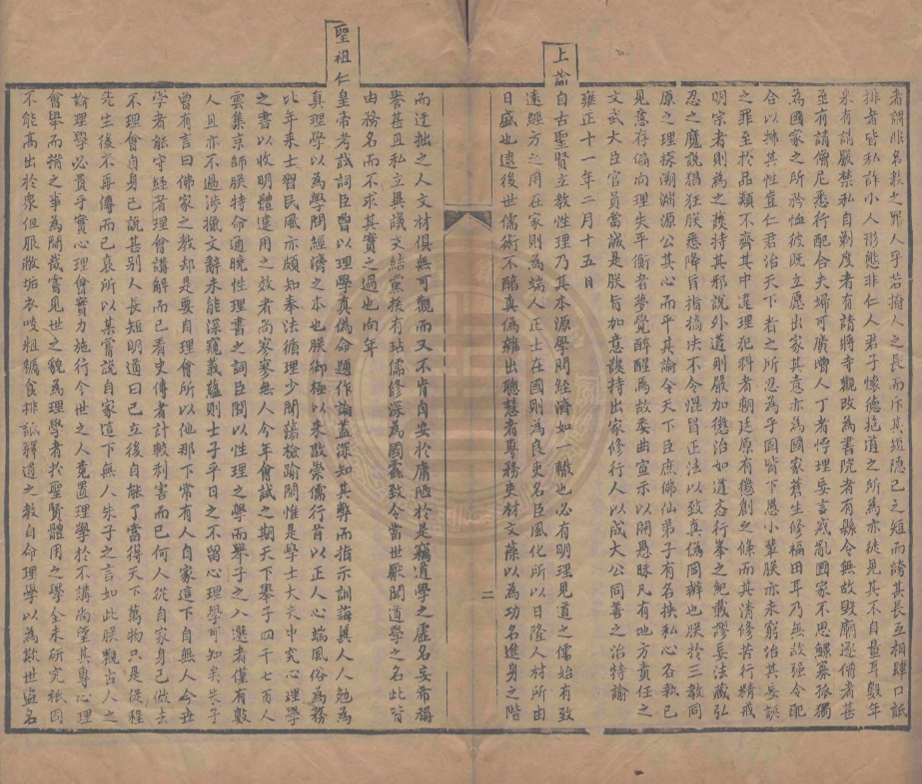 者謂非名教之罪人乎若揄人之長而斥其塚隱己之短而誇其長互相肆口詆
排者皆私詐小人形態非仁人君子懷德抱道之所為亦徒見其不自量耳數年
來有請嚴禁私自剃度者有請將寺觀改為書院者有縣令無故毀廟逐僧者甚
至有請僧尼悉行配合夫婦可廣增人丁者悖理妄言惑亂國家不思鰥寡孤獨
為國家之所矜恤彼既立愿出家其意亦為國家蒼生修福田耳乃無故強令配
合以拂其性豈仁君治天下者之所忍為乎因皆下愚小輩朕亦未窮治其妄誤
之罪至於品類不齊其中違理犯科者朝廷原有懲創之條而其清修苦行精戒
明宗者則為之護持其邪說外道則嚴加懲治如道忞行峯之紀載謬妄法藏弘
忍之魔說猖狂朕悉降旨指摘決不令混冒正法以致真偽罔辨也朕於三教同
原之理探溯淵源公其心而平其論令天下臣庶佛仙弟子有各挾私心各執己
見意存偏向理失平衡者夢覺醉醒焉故委曲宣示以開愚昧凡有地方責任之
文武大臣官員當誠是朕旨加意護持出家修行人以成大公同善之治特諭
雍正十一年二月十五日
上諭自古聖賢立教性理乃其本源學問經濟如一轍也必有明理見道之儒始有致
遠經方之用在家則為端人正士在國則為良吏名臣風化所以日隆人材所由
日盛也逮後世儒術不醇真偽雜出聰慧者專務史材文藻以為功名進身之階
二
而迂拙之人文材俱無可觀而又不肯自安於庸陋於是竊道學之虛名妄希稱
譽甚且私立異議交結黨援有玷儒修深為國蠹致令當世厭聞道學之名此皆
由務名而不求其實之過也向年
聖祖仁皇帝考試詞臣曾以理學真偽命題作論蓋深知其弊而指示訓誨與人人勉為
真理學以為學問經濟之本也朕御極以來敦崇儒行首以正人心端風俗為務
比年來士習民風亦頗知奉法循理少聞蕩檢踰閑惟是學士大夫中究心理學
之書以收明體達用之效者尚寥寥無人今年會試之期天下舉子四千七百人
雲集京師朕特命通曉性理書之詞臣問以性理之學而舉子之入選者僅有數
人且亦不過涉獵文辭未能深窺義蘊則士子平日之不留心理學可知矣朱子
曾有言曰佛家之教却是要自理會所以他那下常有人自家這下自無人今世
學者能守經者理會講解而已看史傳者計較利害而已何人從自家身己做去
不理會自身己說甚別人長短明道曰已立後自能了當得天下萬物只是從程
先生後不再傳而已衰所以某嘗說自家這下無人朱子之言如此朕觀古人之
論理學必貴乎實心理會實力施行今世之人竟置理學於不講尚望其專心理
會學而措之事為間哉嘗見世之貌為理學者於聖賢體用之學全未研究祇因
不能高出於衆但服敝垢衣啖粗糲食排詆釋道之教自命理學以為欺世盜名